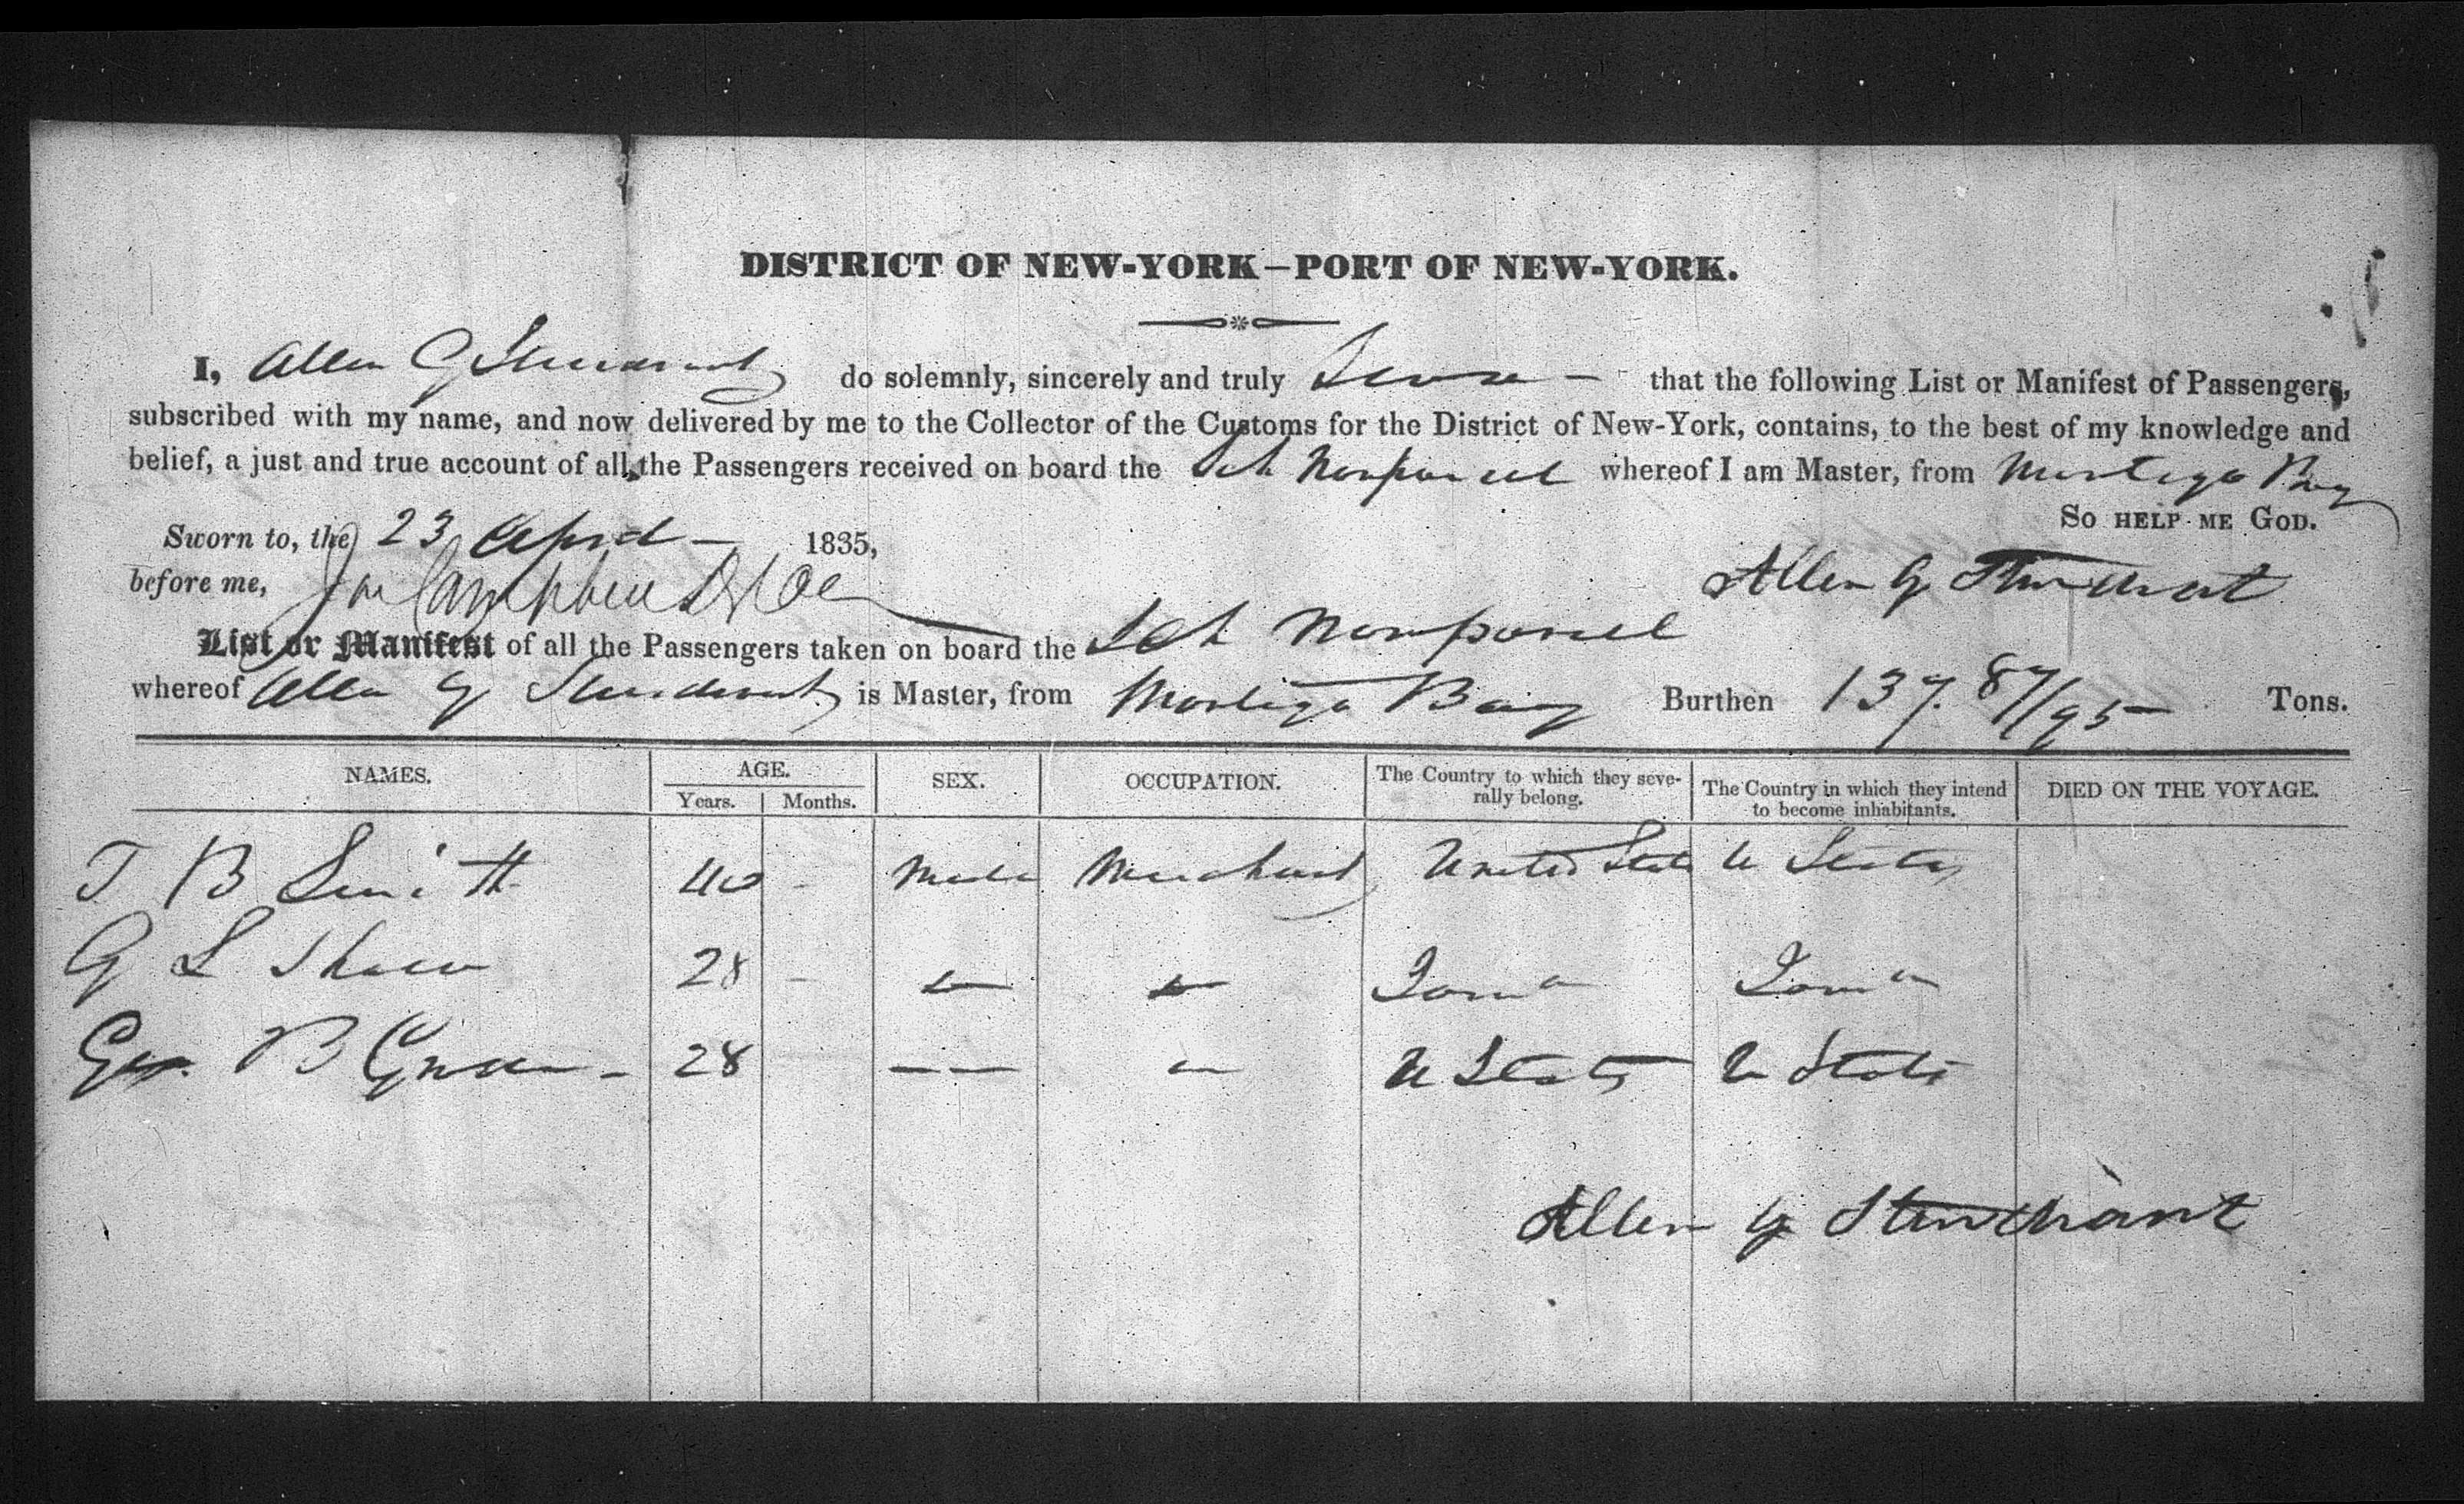 DISTRICT OF NEW-YORK—PORT OF NEW-YORK.
I, Allen G Sturdevant do solemnly, sincerely and truly Swear — that the following List or Manifest of Passengers,
subscribed with my name, and now delivered by me to the Collector of the Customs for the District of New-York, contains, to the best of my knowledge and
belief, a just and true account of all the Passengers received on board the Sch Nonpareil whereof I am Master, from Montego Bay
So HELP ME GOD.
Sworn to, the 23 April — 1835,
before me, Campbell
Allen G Sturdivant
List or Manifest of all the Passengers taken on board the Sch Nonpareil
whereof Allen G Sturdevant is Master, from Montego Bay Burthen 137. 87/95 Tons.
NAMES. AGE. SEX. OCCUPATION. The Country to which they seve- The Country in which they intend DIED ON THE VOYAGE.
Years. Months. rally belong. to become inhabitants.
T B Smith 40 - Male Merchant United States U States
G L Shaw 28 -
Geo. B Green - 28 — — — U States U States
Allen G Sturdivant